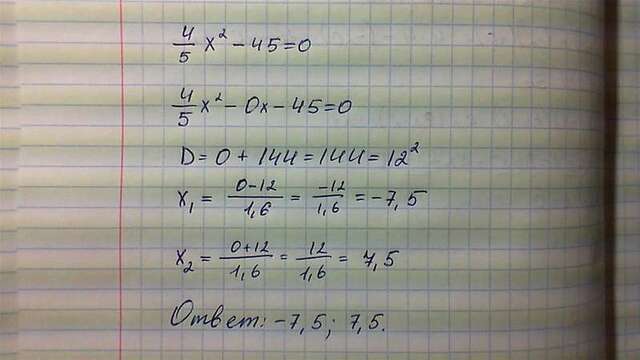 4/5 x² - 45 = 0
4/5 x² - 0x - 45 = 0
D = 0 + 144 = 144 = 12²
x₁ = 0-12/1,6 = -12/1,6 = -7,5
x₂ = 0+12/1,6 = 12/1,6 = 7,5
Ответ: -7,5; 7,5.